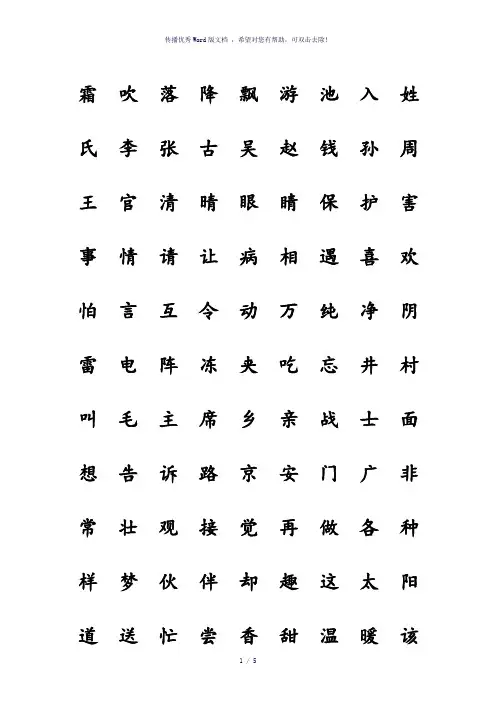 传播优秀Word版文档 ，希望对您有帮助，可双击去除！
霜 吹 落 降 飘 游 池 入 姓
氏 李 张 古 吴 赵 钱 孙 周
王 官 清 晴 眼 睛 保 护 害
事 情 请 让 病 相 遇 喜 欢
怕 言 互 令 动 万 纯 净 阴
雷 电 阵 冻 夹 吃 忘 井 村
叫 毛 主 席 乡 亲 战 士 面
想 告 诉 路 京 安 门 广 非
常 壮 观 接 觉 再 做 各 种
样 梦 伙 伴 却 趣 这 太 阳
道 送 忙 尝 香 甜 温 暖 该
1 / 5